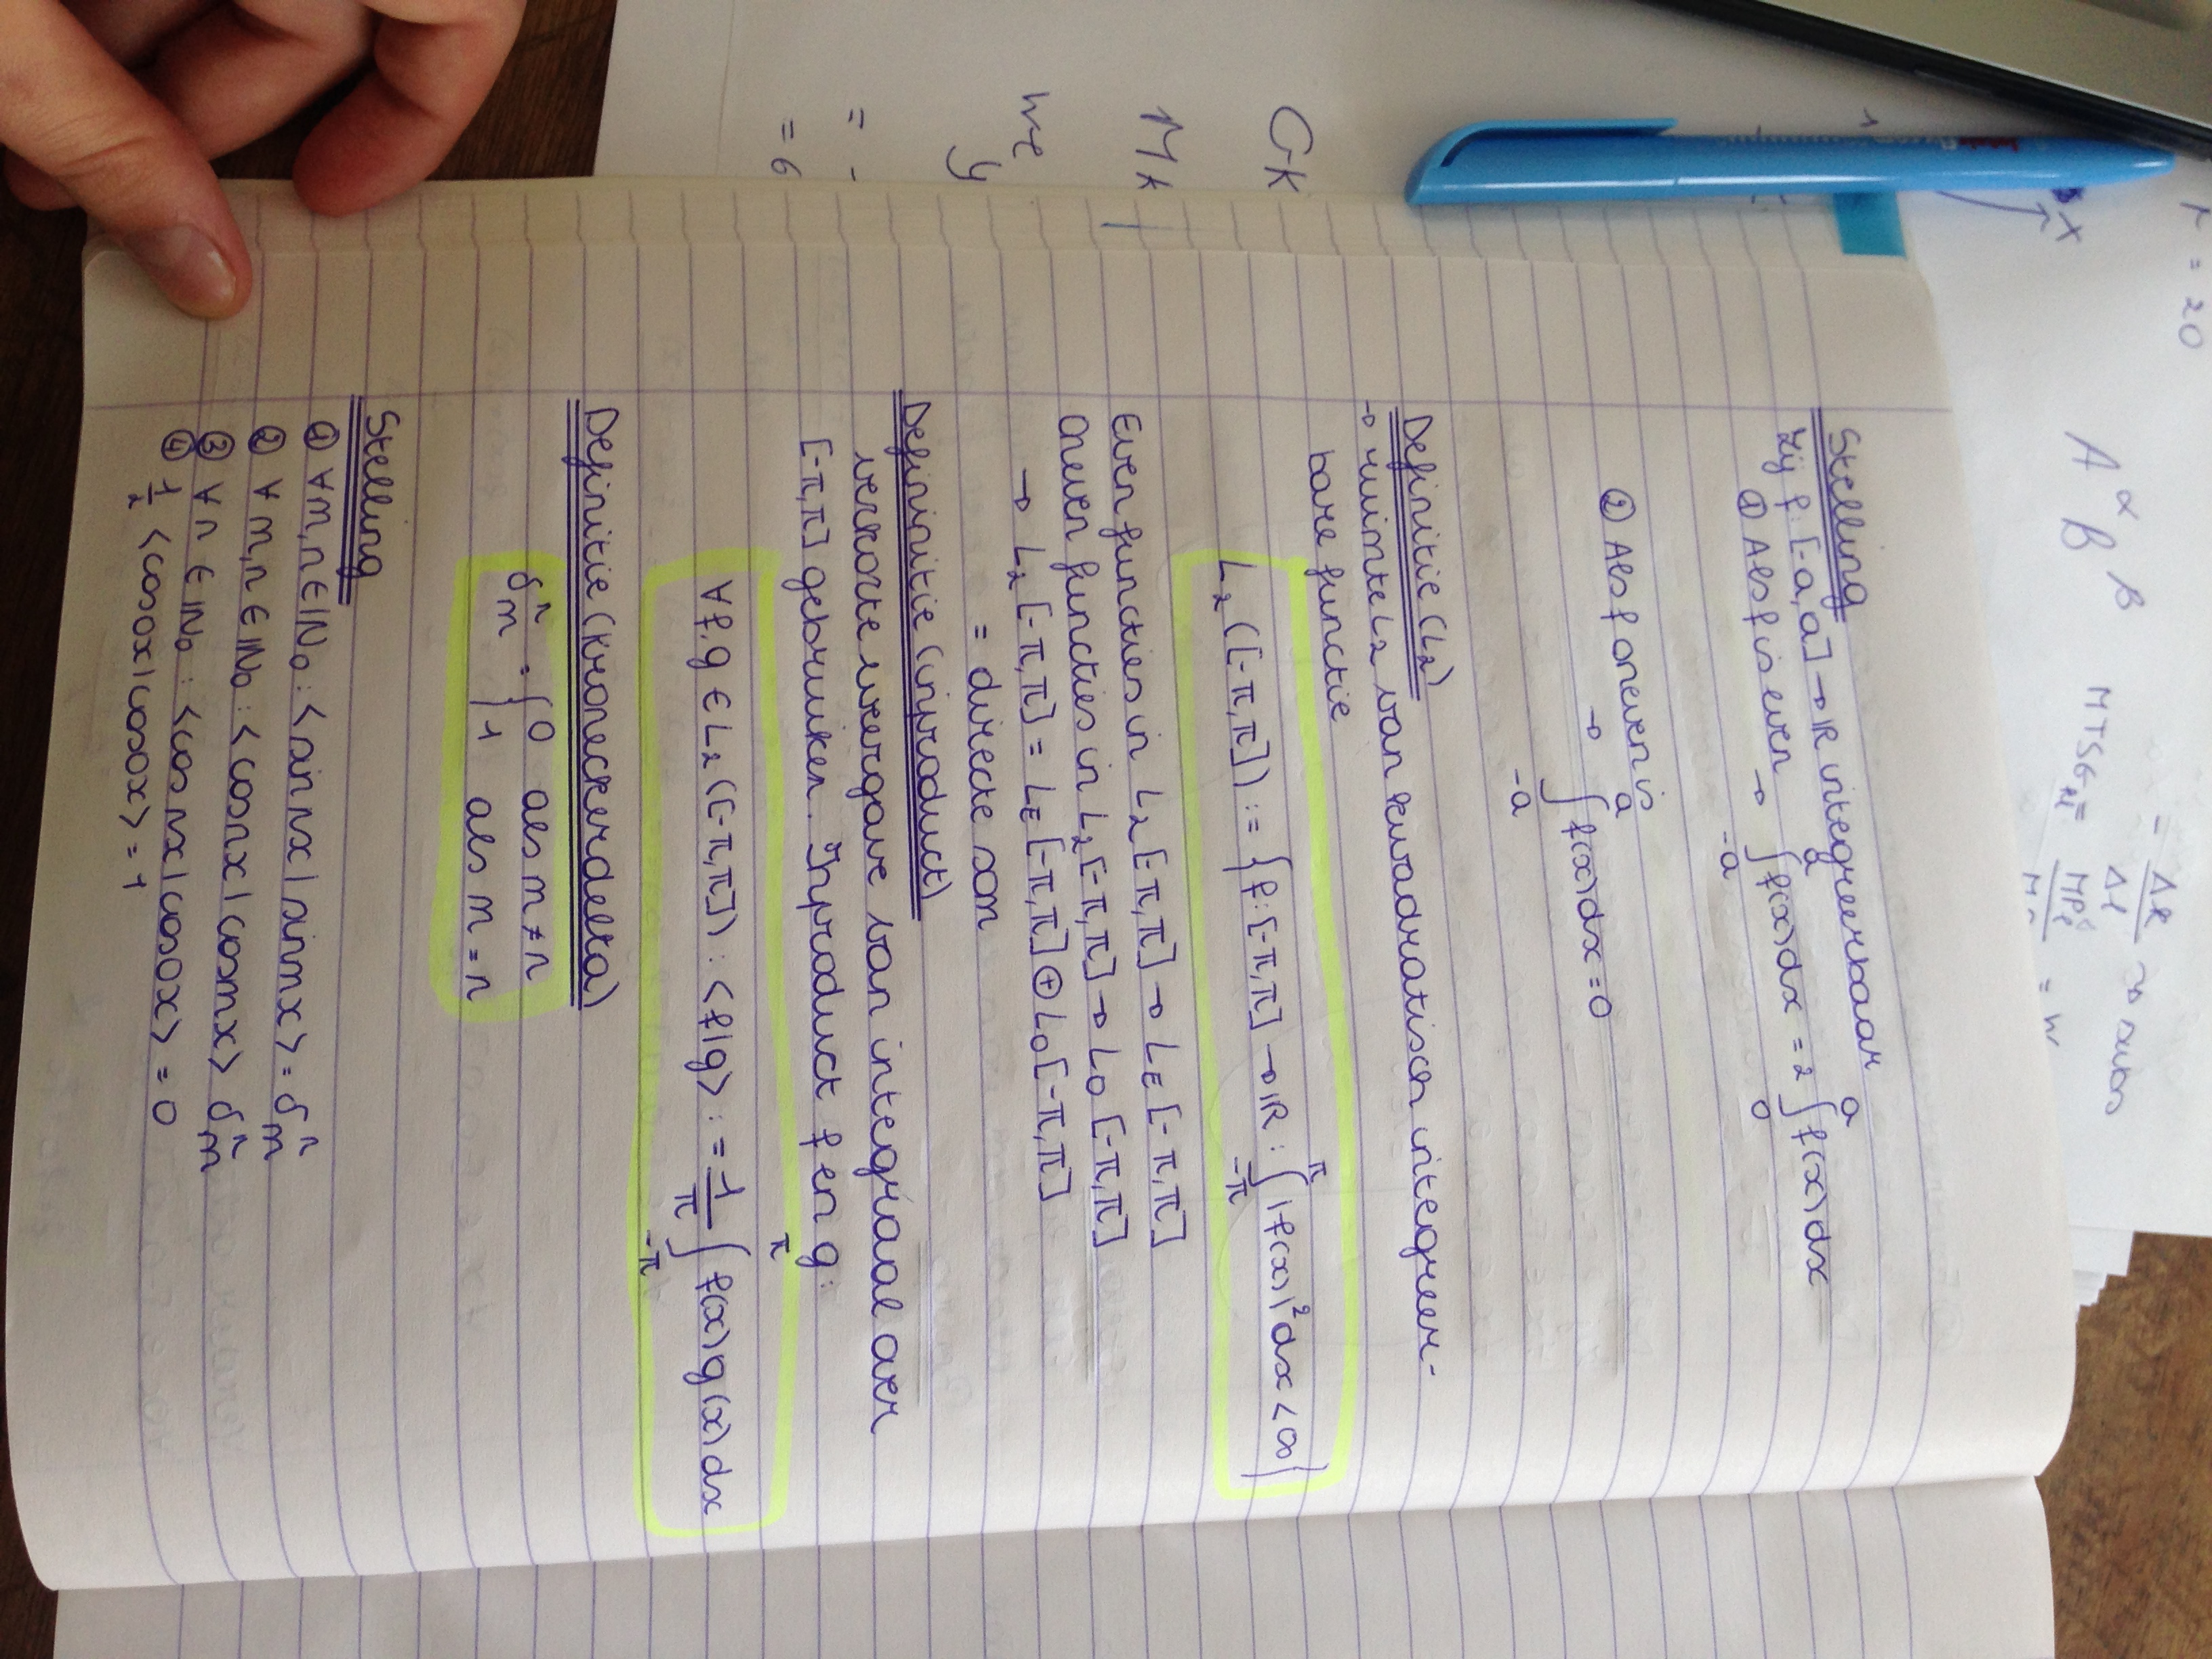 r = 20
A^α B^β
- ΔK/Δl → subs
MTSG = MP_l / = w
x
Stelling
Zij f: [-a, a] → ℝ integreerbaar
① Als f is even → ∫_{-a}^{a} f(x) dx = 2 ∫_{0}^{a} f(x) dx
② Als f oneven is
→ ∫_{-a}^{a} f(x) dx = 0
Definitie (L₂)
→ ruimte L₂ van kwadratisch integreer-
bare functie
L₂ ([-π, π]) := {f: [-π, π] → ℝ : ∫_{-π}^{π} |f(x)|² dx < ∞}
Even functies in L₂ [-π, π] → L_E [-π, π]
Oneven functies in L₂ [-π, π] → L_O [-π, π]
→ L₂ [-π, π] = L_E [-π, π] ⊕ L_O [-π, π]
= directe som
Defininitie (inproduct)
verkorte weergave van integraal over
[-π, π] gebruiken. Inproduct f en g:
∀ f, g ∈ L₂ ([-π, π]) : <f|g> := 1/π ∫_{-π}^{π} f(x) g(x) dx
Definitie (Kroneckerdelta)
δ_m^n = { 0 als m ≠ n
1 als m = n
Stelling
① ∀ m, n ∈ ℕ₀ : <sin nx | sin mx> = δ_m^n
② ∀ m, n ∈ ℕ₀ : <cos nx | cos mx> δ_m^n
③ ∀ n ∈ ℕ₀ : <cos nx | cos 0x> = 0
④ 1/2 <cos 0x | cos 0x> = 1
GK
MK
we
y
= -
= 6